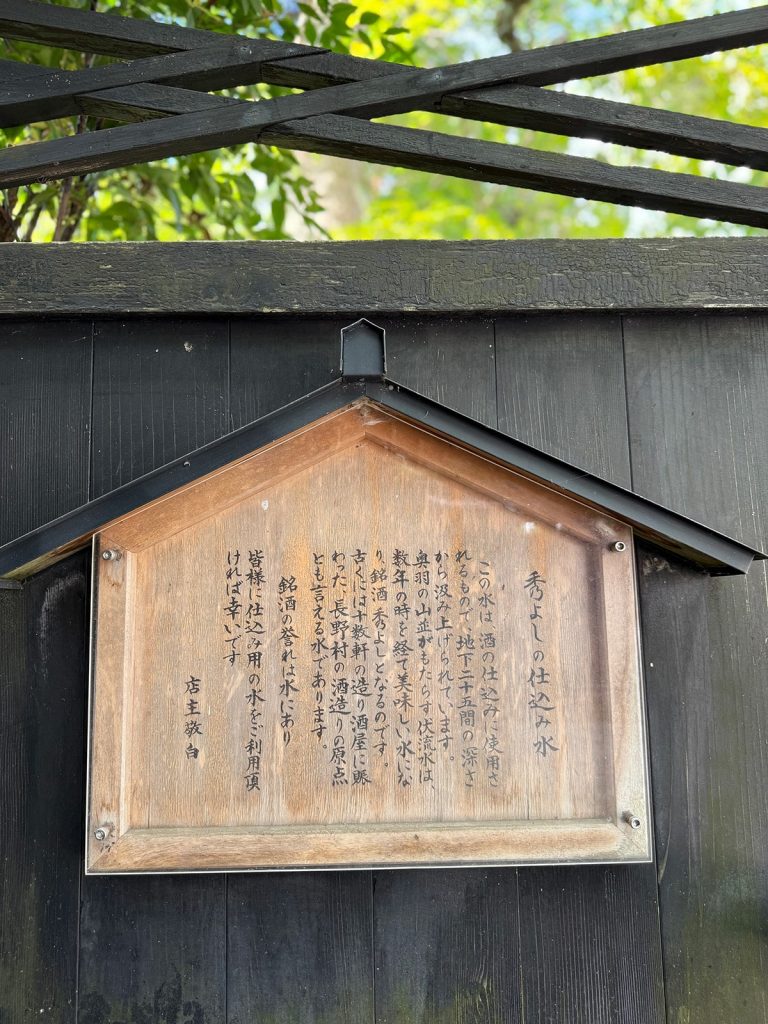 秀よしの仕込み水
この水は、酒の仕込みに使用さ
れるもので、地下二十五間の深さ
から汲み上げられています。
奥羽の山並がもたらす伏流水は、
数年の時を経て美味しい水にな
り、銘酒 秀よしとなるのです。
古くには十数軒の造り酒屋に賑
わった、長野村の酒造りの原点
とも言える水であります。
銘酒の誉れは水にあり
皆様に仕込み用の水をご利用頂
ければ幸いです
店主敬白